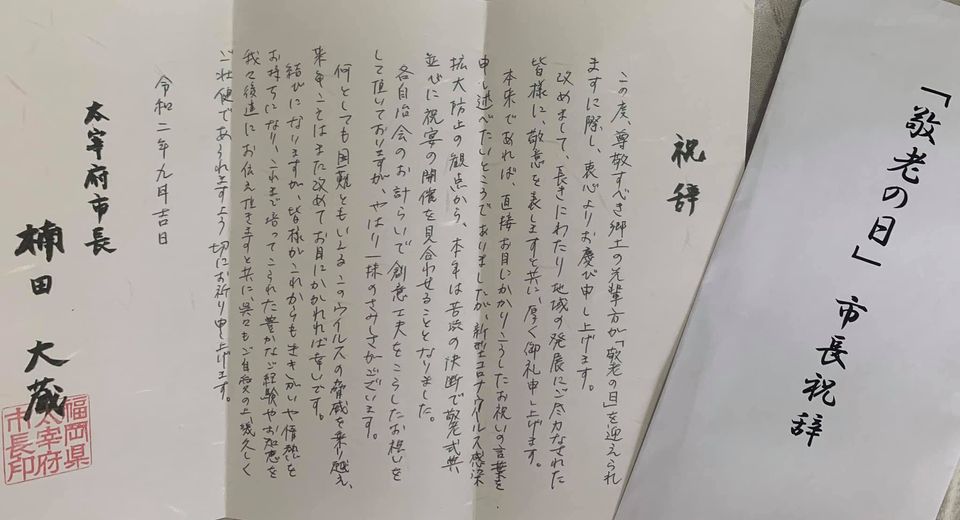 「敬老の日」 市長祝辞
祝辞
この度、尊敬すべき郷土の先輩方が「敬老の日」を迎えられ
ますに際し、衷心よりお慶び申し上げます。
改めまして、長きにわたり地域の発展にご尽力なされた
皆様に、敬意を表しますと共に、厚く御礼申し上げます。
本来であれば、直接お目にかかりこうしたお祝いの言葉を
申し述べたいところでありましたが、新型コロナウイルス感染
拡大防止の観点から、本年は苦渋の決断で敬老式典
並びに祝宴の開催を見合わせることとなりました。
各自治会のお計らいで創意工夫をこらしたお祝いを
して頂いておりますが、やはり一抹のさみしさがございます。
何としても国難ともいえるこのウイルスの脅威を乗り越え、
来年ことはまた改めてお目にかかれれば幸いです。
結びになりますが、皆様がこれからも生きがいや情熱を
お持ちになり、これまで培ってこられた豊かなご経験やお知恵を
我々後進にお伝え頂きますと共に、呉々もご自愛の上、幾久しく
ご壮健であられますよう切にお祈り申し上げます。
令和二年九月吉日
太宰府市長
楠田 大蔵
福岡県
太宰府
市長印